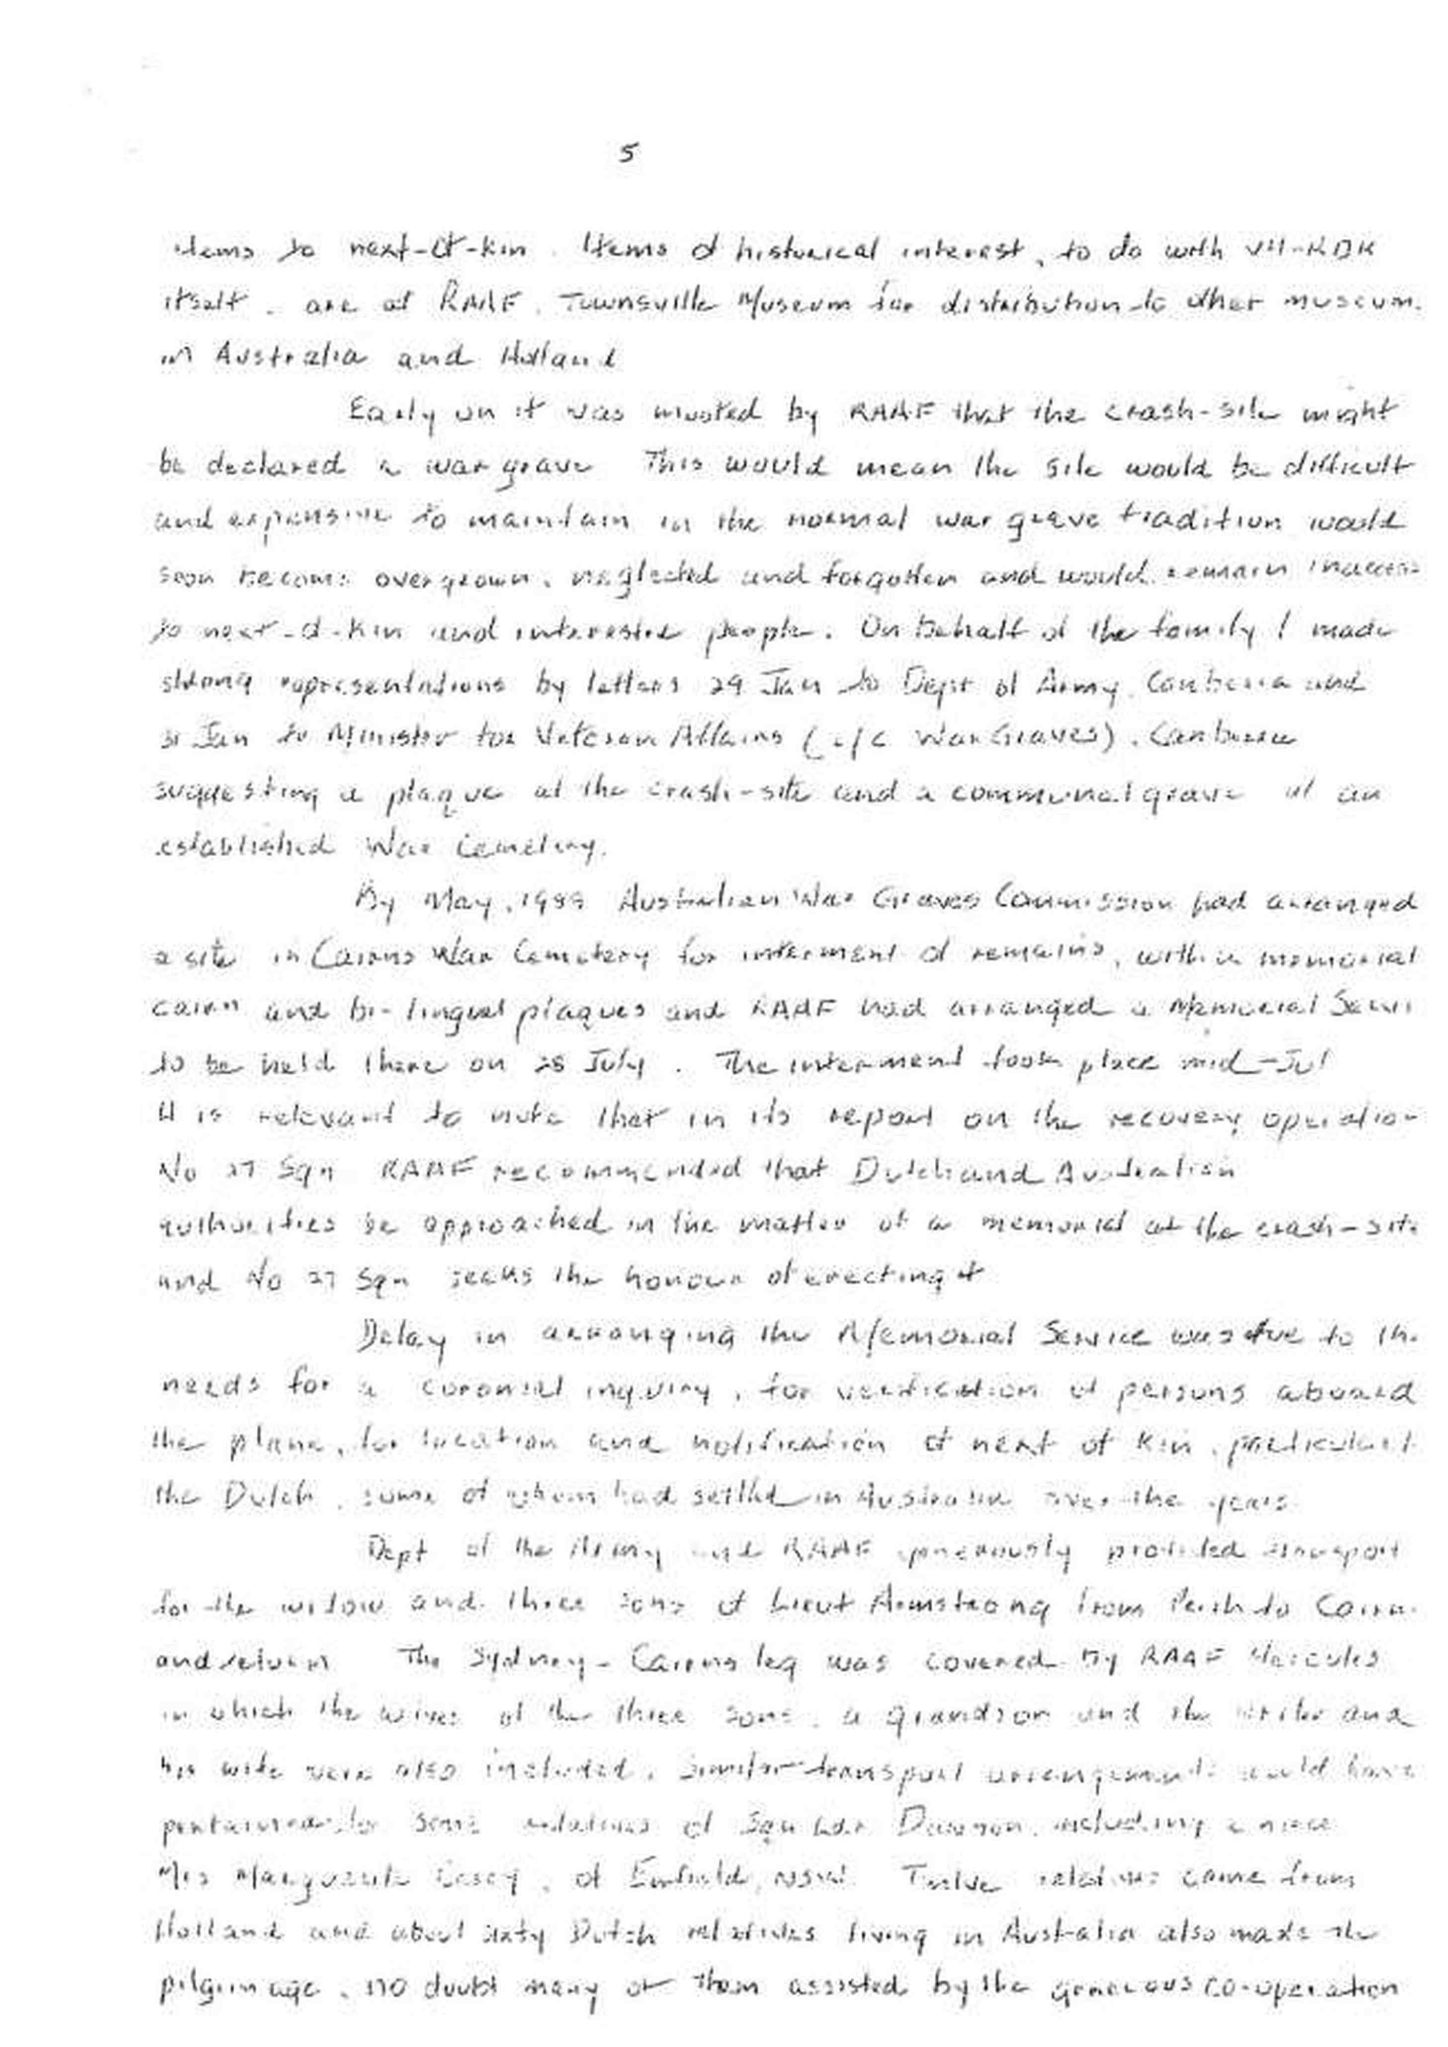 5
items to next-of-kin. Items of historical interest, to do with VH-RDK
itself, are at RAAF, Townsville Museum for distribution to other museum
in Australia and Holland
Early on it was mooted by RAAF that the crash-site might
be declared a war grave This would mean the site would be difficult
and expensive to maintain in the normal war grave tradition would
soon become overgrown, neglected and forgotten and would remain inaccess
to next-of-kin and interested people. On behalf of the family I made
strong representations by letters 29 Jan to Dept of Army, Canberra and
31 Jan to Minister for Veteran Affairs (c/c War Graves), Canberra
suggesting a plaque at the crash-site and a communal grave at an
established War Cemetery.
By May, 1989 Australian War Graves Commission had arranged
a site in Cairns War Cemetery for interment of remains, with a memorial
cairn and bi-lingual plaques and RAAF had arranged a Memorial Servi
to be held there on 28 July. The interment took place mid-Jul
It is relevant to note that in its report on the recovery operatio
No 27 Sqn RAAF recommended that Dutch and Australian
authorities be approached in the matter of a memorial at the crash-site
and No 27 Sqn seeks the honour of erecting it
Delay in arranging the Memorial Service was due to th
needs for a coronial inquiry, for verification of persons aboard
the plane, for location and notification of next of kin, particularl
the Dutch, some of whom had settled in Australia over the years
Dept of the Army and RAAF generously provided transport
for the widow and three sons of Lieut Armstrong from Perth to Cairn
and return The Sydney-Cairns leg was covered by RAAF Hercules
in which the wives of the three sons, a grandson and the writer and
his wife were also included. Similar transport arrangements would have
pertained for some relatives of Sqn Ldr Dawson, including a niece
Mrs Marguerite Casey, of Enfield, NSW. Twelve relatives came from
Holland and about sixty Dutch relatives living in Australia also made the
pilgrimage, no doubt many of them assisted by the generous co-operation